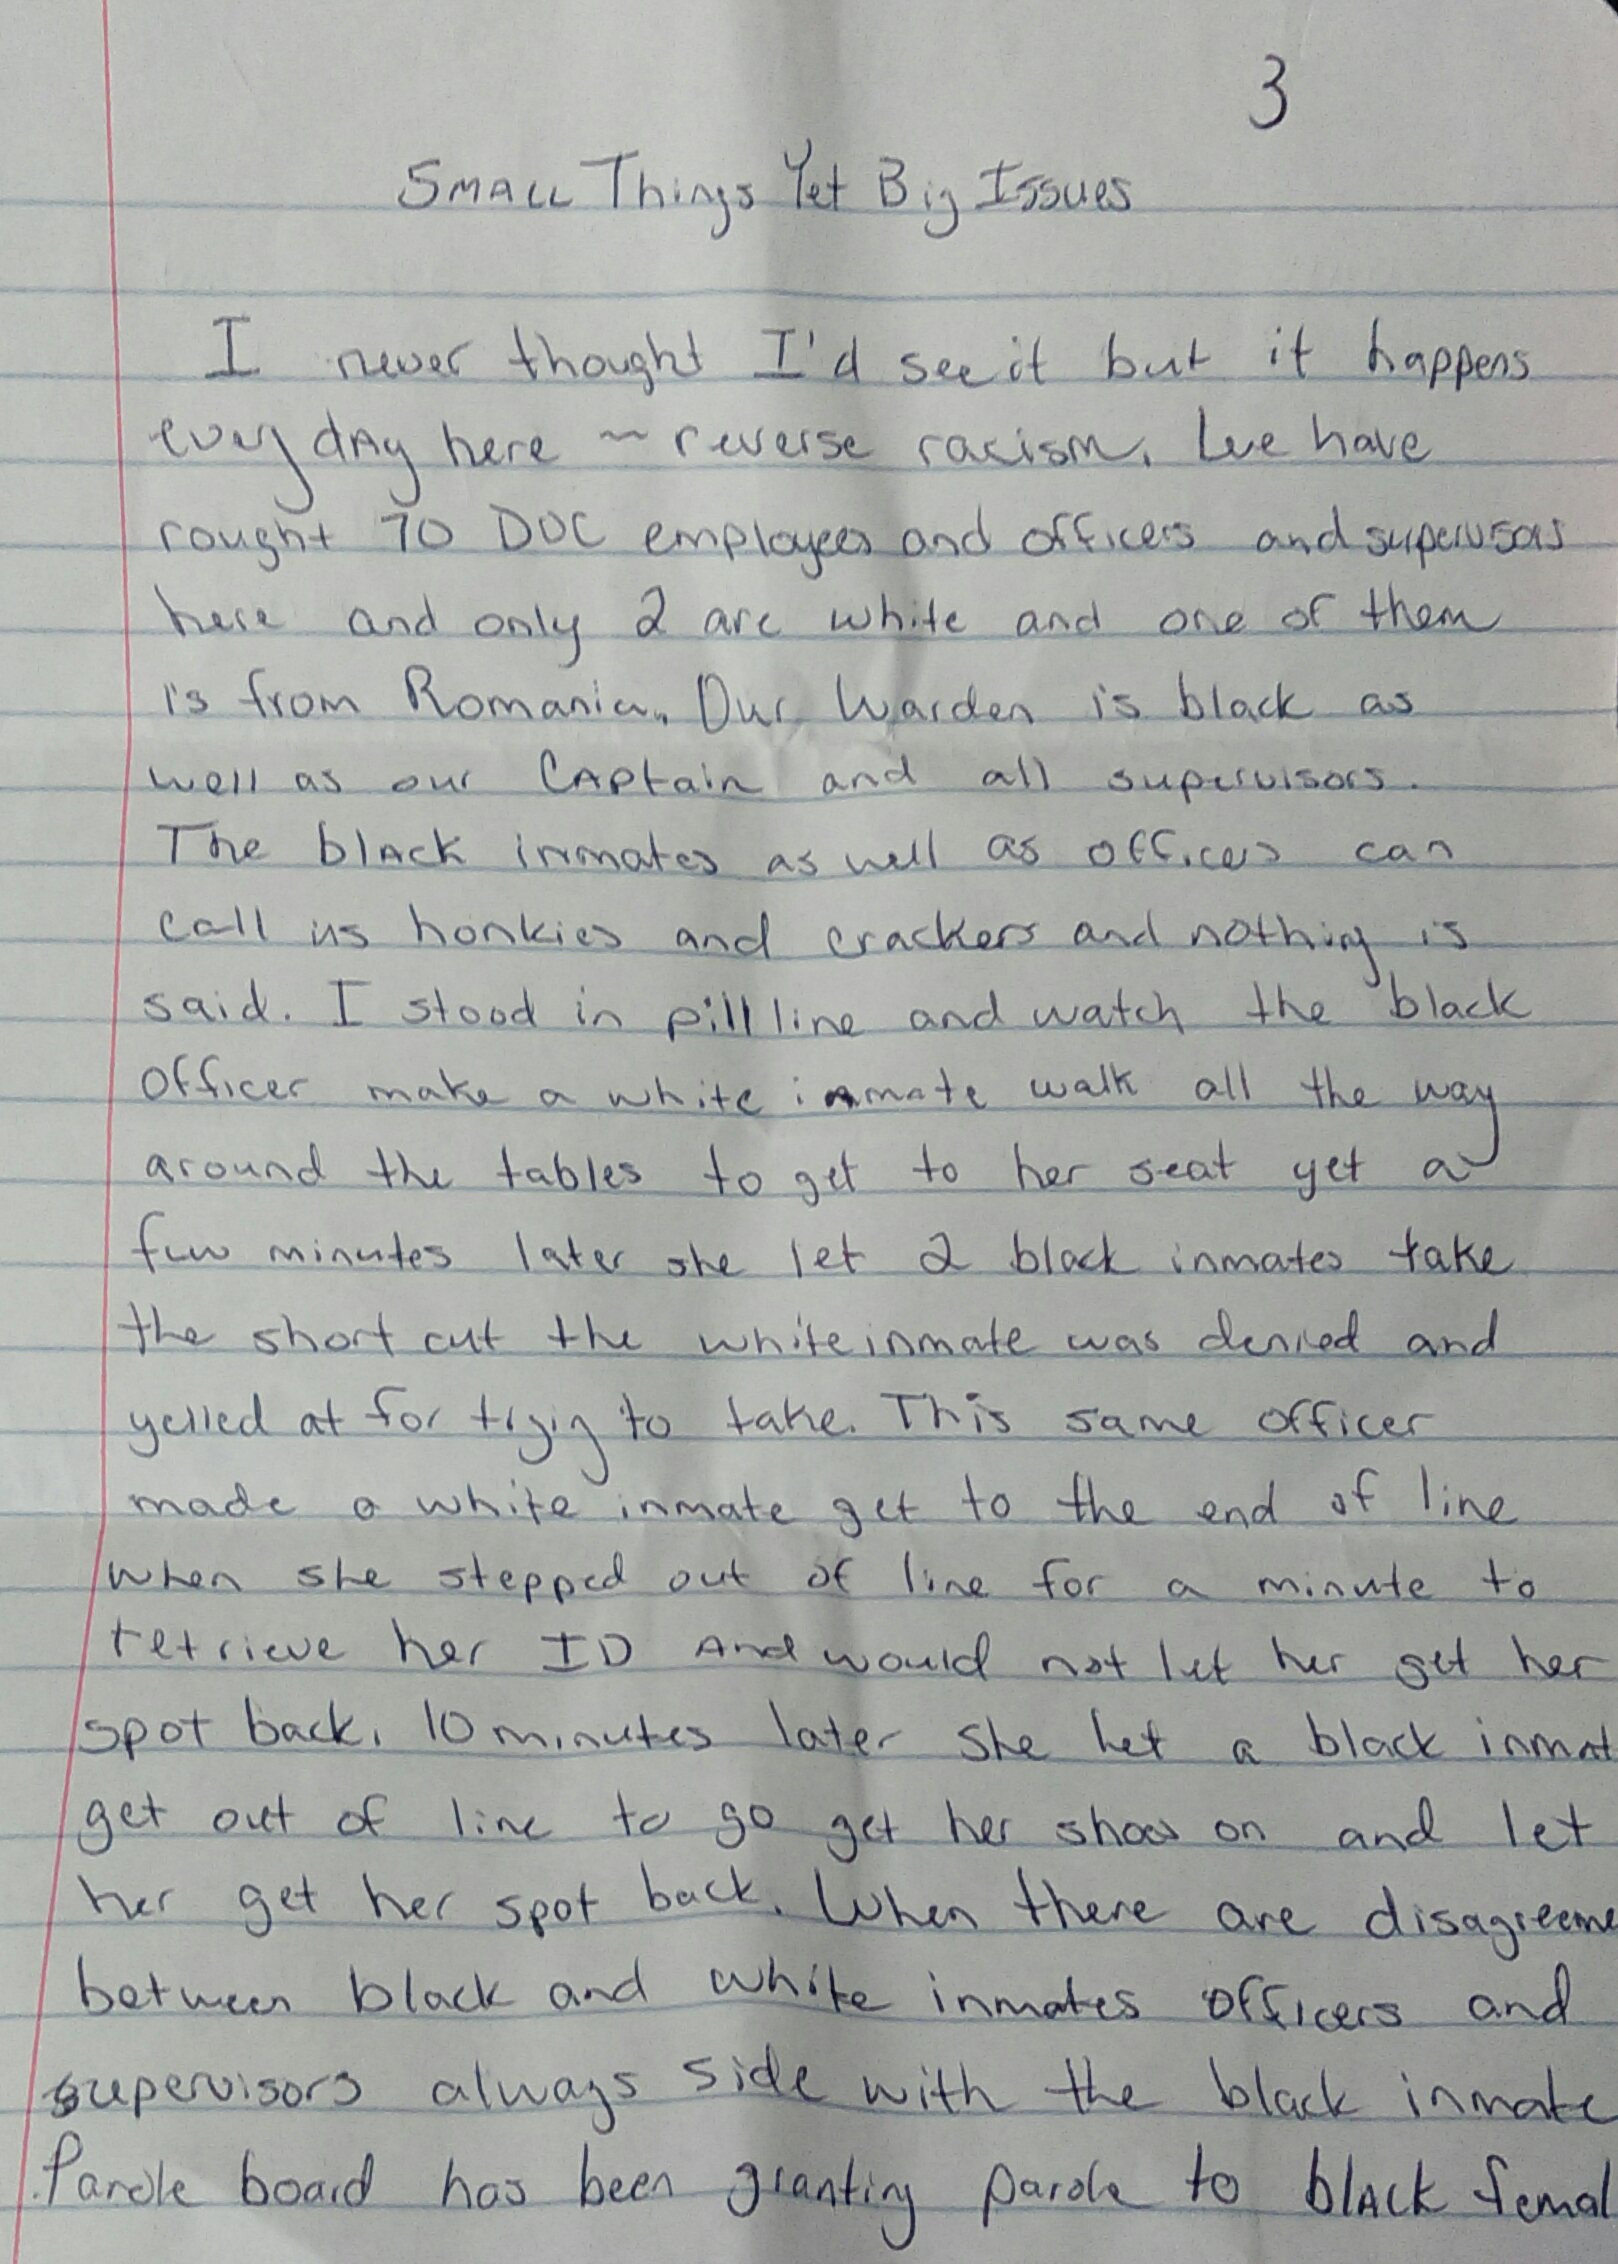 3
Small Things Yet Big Issues
I never thought I'd see it but it happens
every day here ~ reverse racism. We have
rought 70 DOC employees and officers and supervisors
here and only 2 are white and one of them
is from Romania. Our Warden is black as
well as our Captain and all supervisors.
The black inmates as well as officers can
call us honkies and crackers and nothing is
said. I stood in pill line and watch the black
officer make a white inmate walk all the way
around the tables to get to her seat yet a
few minutes later she let 2 black inmates take
the short cut the white inmate was denied and
yelled at for tryig to take. This same officer
made a white inmate get to the end of line
when she stepped out of line for a minute to
retrieve her ID and would not let her get her
spot back. 10 minutes later she let a black inmat
get out of line to go get her shoes on and let
her get her spot back. When there are disagreeme
between black and white inmates officers and
supervisors always side with the black inmate
Parole board has been granting parole to black femal